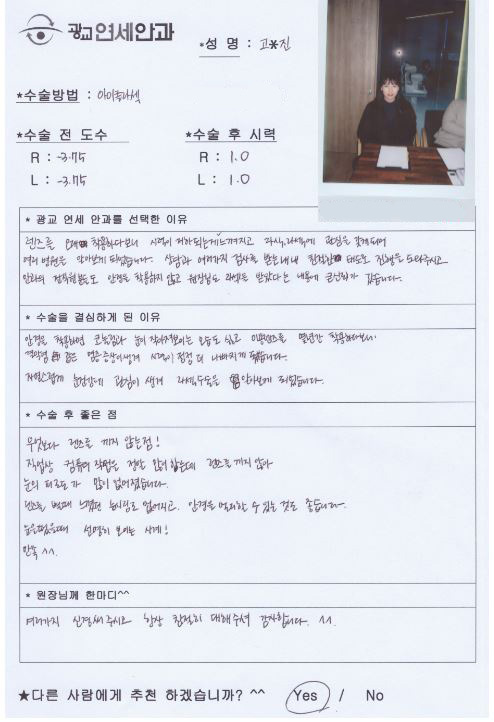 광교연세안과
*성 명 : 고*진
*수술방법 : 아이투라섹
*수술 전 도수
*수술 후 시력
R : -3.75
R : 1.0
L : -3.75
L : 1.0
* 광교 연세 안과를 선택한 이유
렌즈를 오래 착용하다보니 시력이 저하되는게 느껴지고 라식,라섹에 관심을 갖게되어
여러 병원을 알아보게 되었습니다. 상담과 여러가지 검사를 받는내내 친절한 태도로 진행을 도와주시고
안과의 직원분들도 안경을 착용하지 않고 원장님도 라섹을 받았다는 내용에 큰신뢰가 갔습니다.
* 수술을 결심하게 된 이유
안경을 착용하면 콧눌림과 눈이 작아져보이는 모습도 싫고 미용렌즈를 몇년간 착용하다보니
결막염 같은 염증증상이생겨 시력이 점점 더 나빠지게 됐습니다.
자연스럽게 눈건강에 관심이 생겨 라섹수술을 알아보게 되었습니다.
* 수술 후 좋은 점
무엇보다 렌즈를 끼지 않는점!
직업상 컴퓨터 작업을 정말 많이 하는데 렌즈를 끼지 않아
눈의 피로도가 많이 없어졌습니다.
렌즈를 뺄때 느꼈던 눈시림도 없어지고, 안경을 벗을 수 있는 것도 좋습니다.
눈을떴을때 선명히 보이는 시계!
만족 ^^.
* 원장님께 한마디^^
여러가지 신경써주시고 항상 친절히 대해주셔 감사합니다. ^^.
★다른 사람에게 추천 하겠습니까? ^^ Yes / No